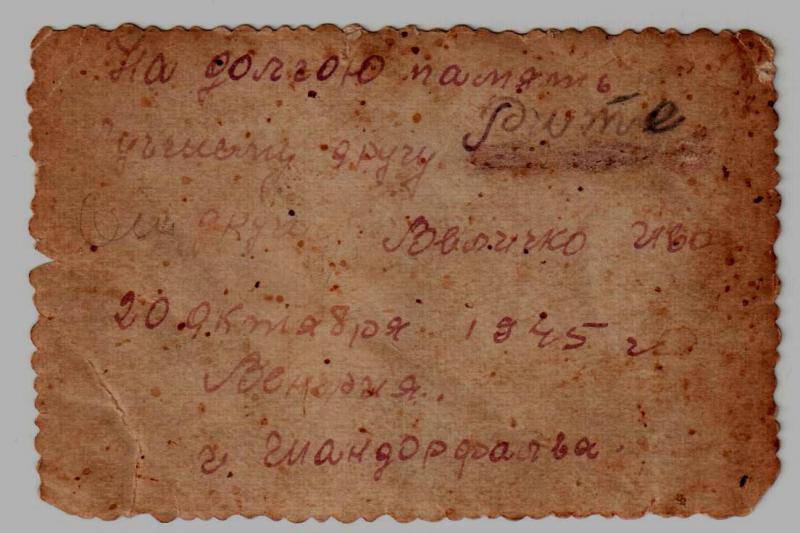 На долгою память
Лучшему другу Рите
От друга Величко Ива
20 октября 1945 г
Венгрия.
г. Шандорфалва.